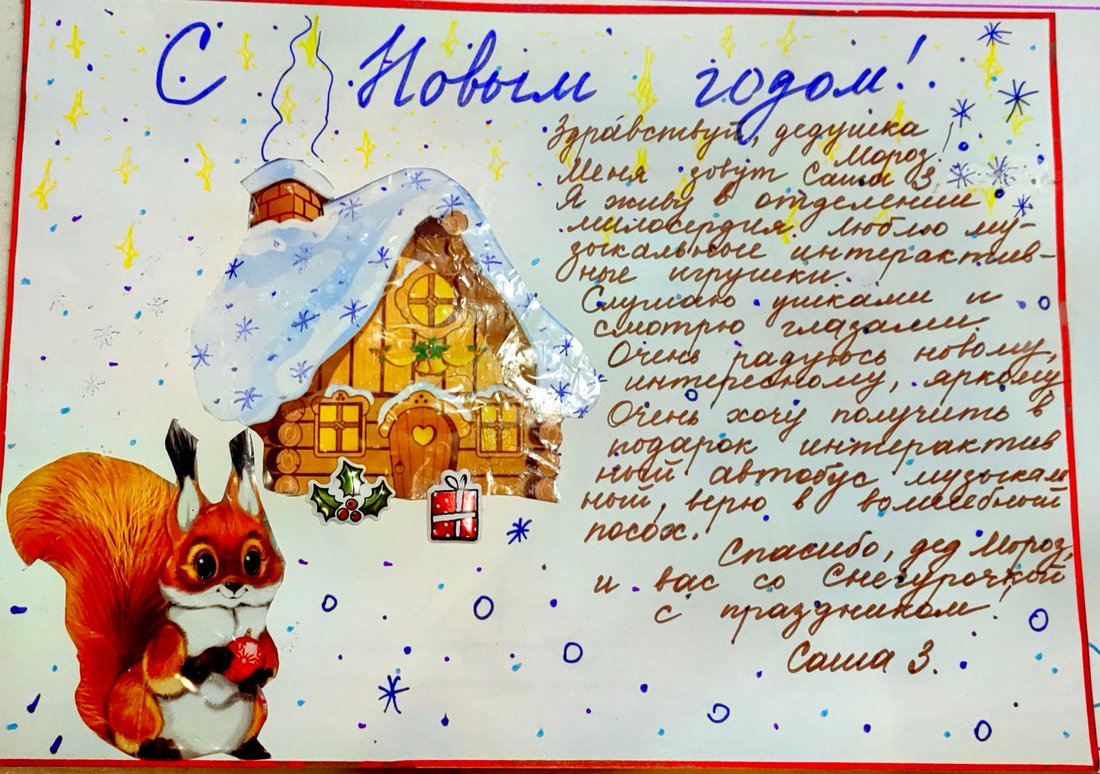 С Новым годом!
Здравствуй, дедушка
Мороз.
Меня зовут Саша З.
Я живу в отделении
милосердия. Люблю му-
зыкальные интерактив-
ные игрушки.
Слушаю ушками и
смотрю глазами.
Очень радуюсь новому,
интересному, яркому
Очень хочу получить в
подарок интерактив
ный автобус музыкал
ный, верю в волшебный
посох.
Спасибо, дед Мороз,
и вас со Снегурочкой
с праздником!
Саша З.